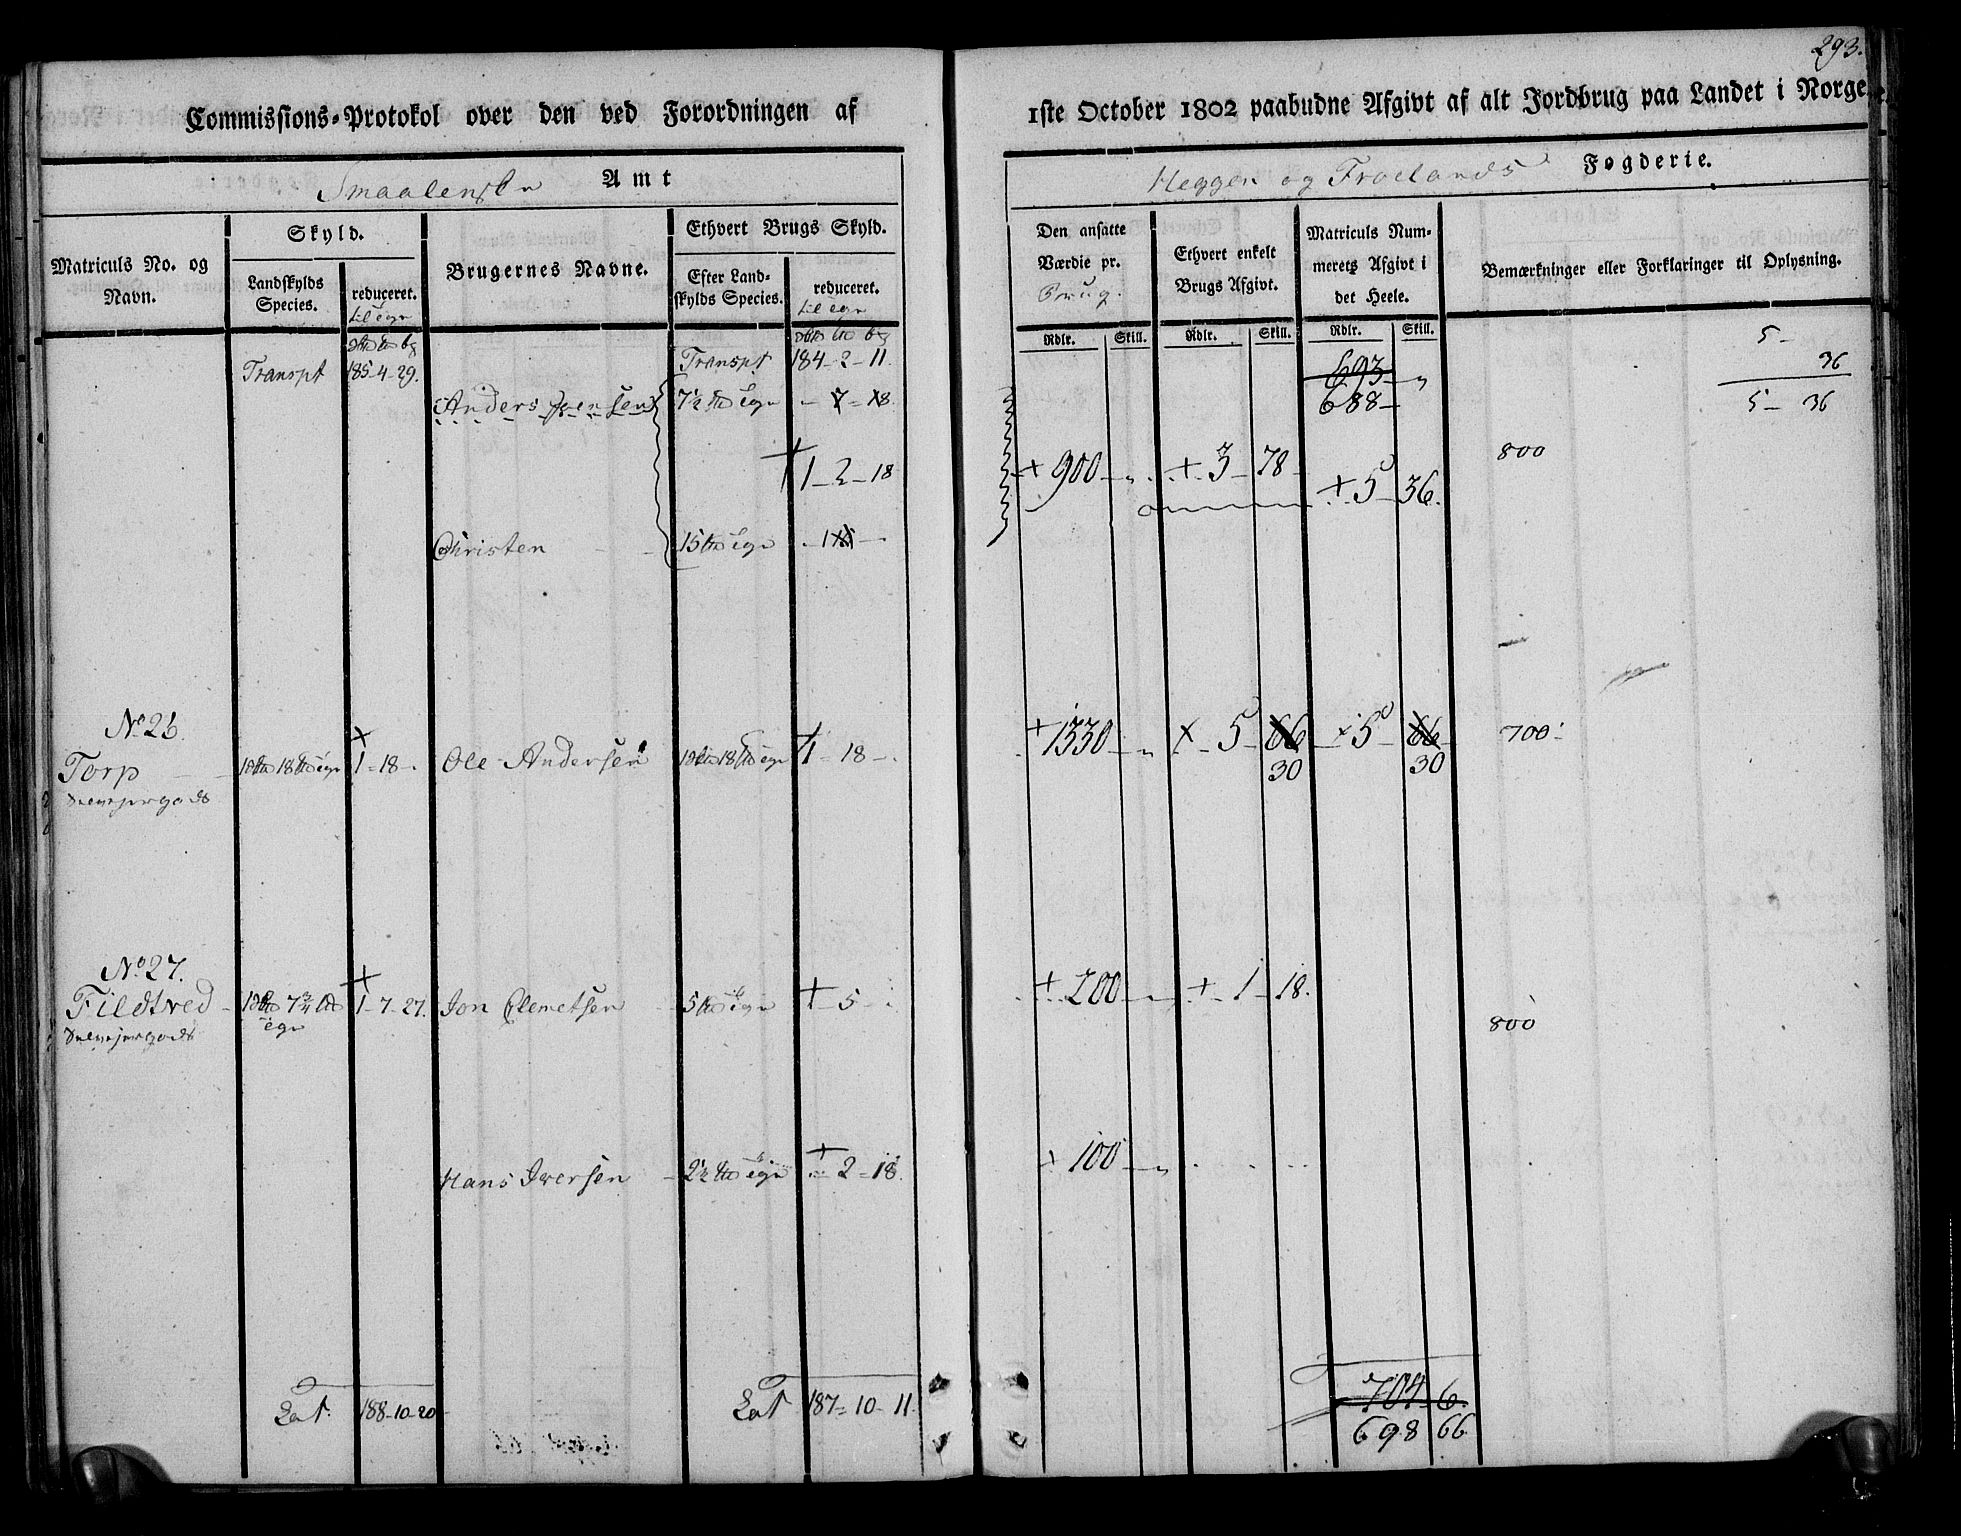 293.
Commissions-Protokol over den ved Forordningen af 1ste October 1802 paabudne Afgivt af alt Jordbrug paa Landet i Norge.
Smaalenske Amt
Heggen og Froelands Fogderie.
Matriculs No. og Navn.
Skyld.
Landskylds Species.
reduceret. til
Brugernes Navne.
Ethvert Brugs Skyld.
Efter Landskylds Species.
reduceret. til
Den ansatte Værdie pr. Brug.
Ethvert enkelt Brugs Afgivt.
Matriculs Nummerets Afgivt i det Heele.
Bemærkninger eller Forklaringer til Oplysning.
Rdlr. Skill. Rdlr. Skill. Rdlr. Skill.
Transpt 185-4-29. Transpt 184-2-11. 693- 5-
688- 36
5- 36
Anders 7½ - 7-18.
1-2-18 + 900 - + 3-78- + 5-36. 800
Christen 15
No 26.
Torp 18 1-18-. Ole Andersen 18 1-18-. + 1330 - 5-66 5-66 700
30 30
No 27.
Fildtved 7¾ 1-7-27. Jon Clemetsen 5 + 5- + 200 - + 1-18. 800
Hans Iversen 2½ 2-18. + 100
Lat. 188-10-20 Lat 187-10-11. 704-6.
698 66